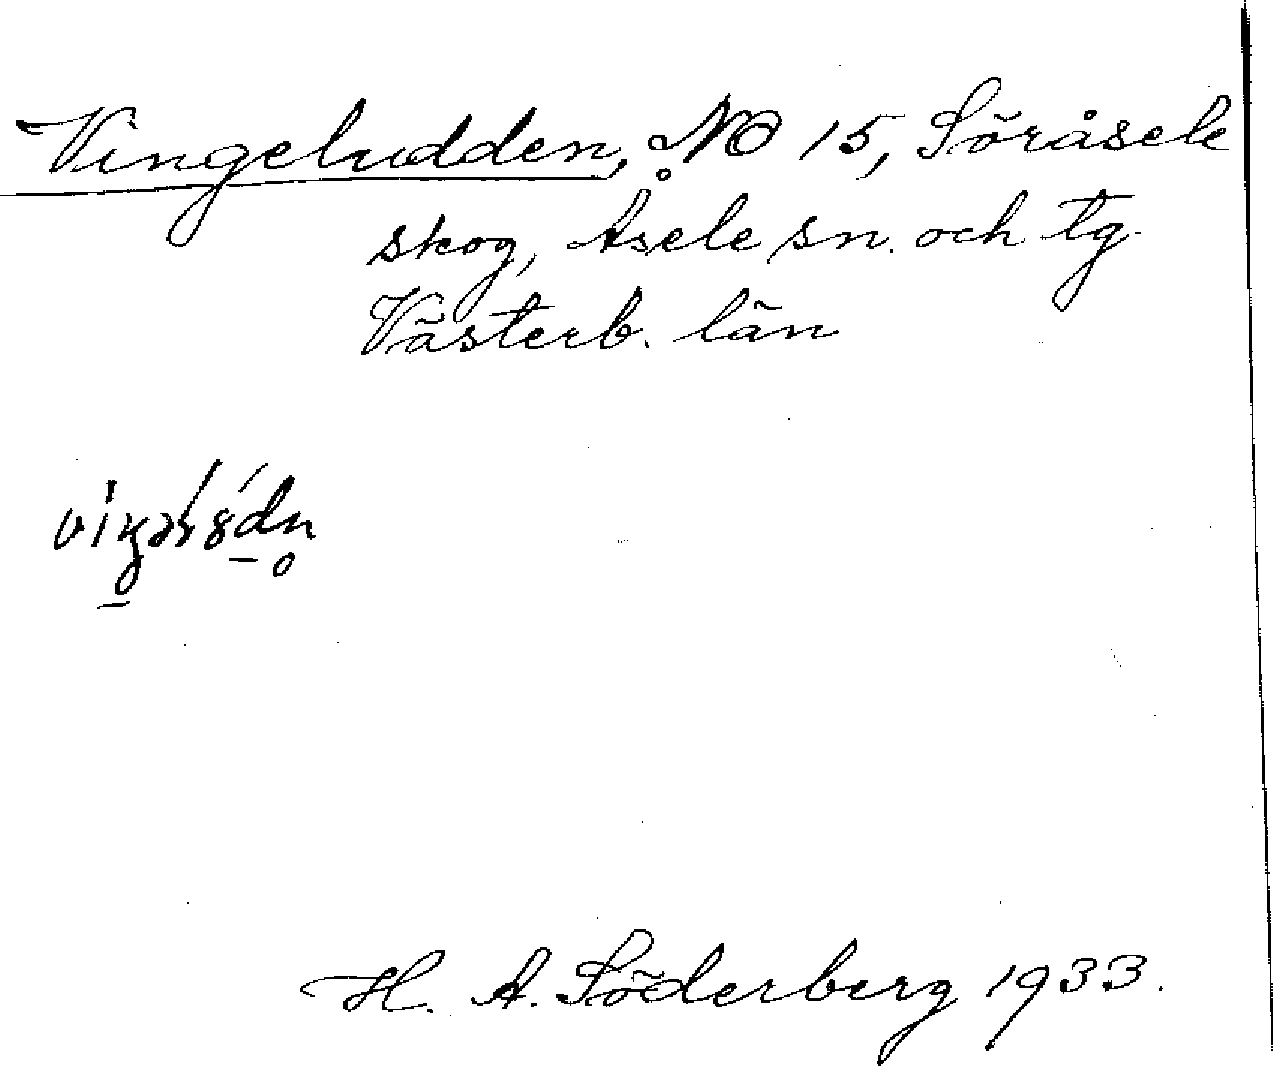 Vingeludden, NO 15, Söråsele
skog, Åsele sn. och tg.
Västerb. län
H. A. Söderberg 1933.